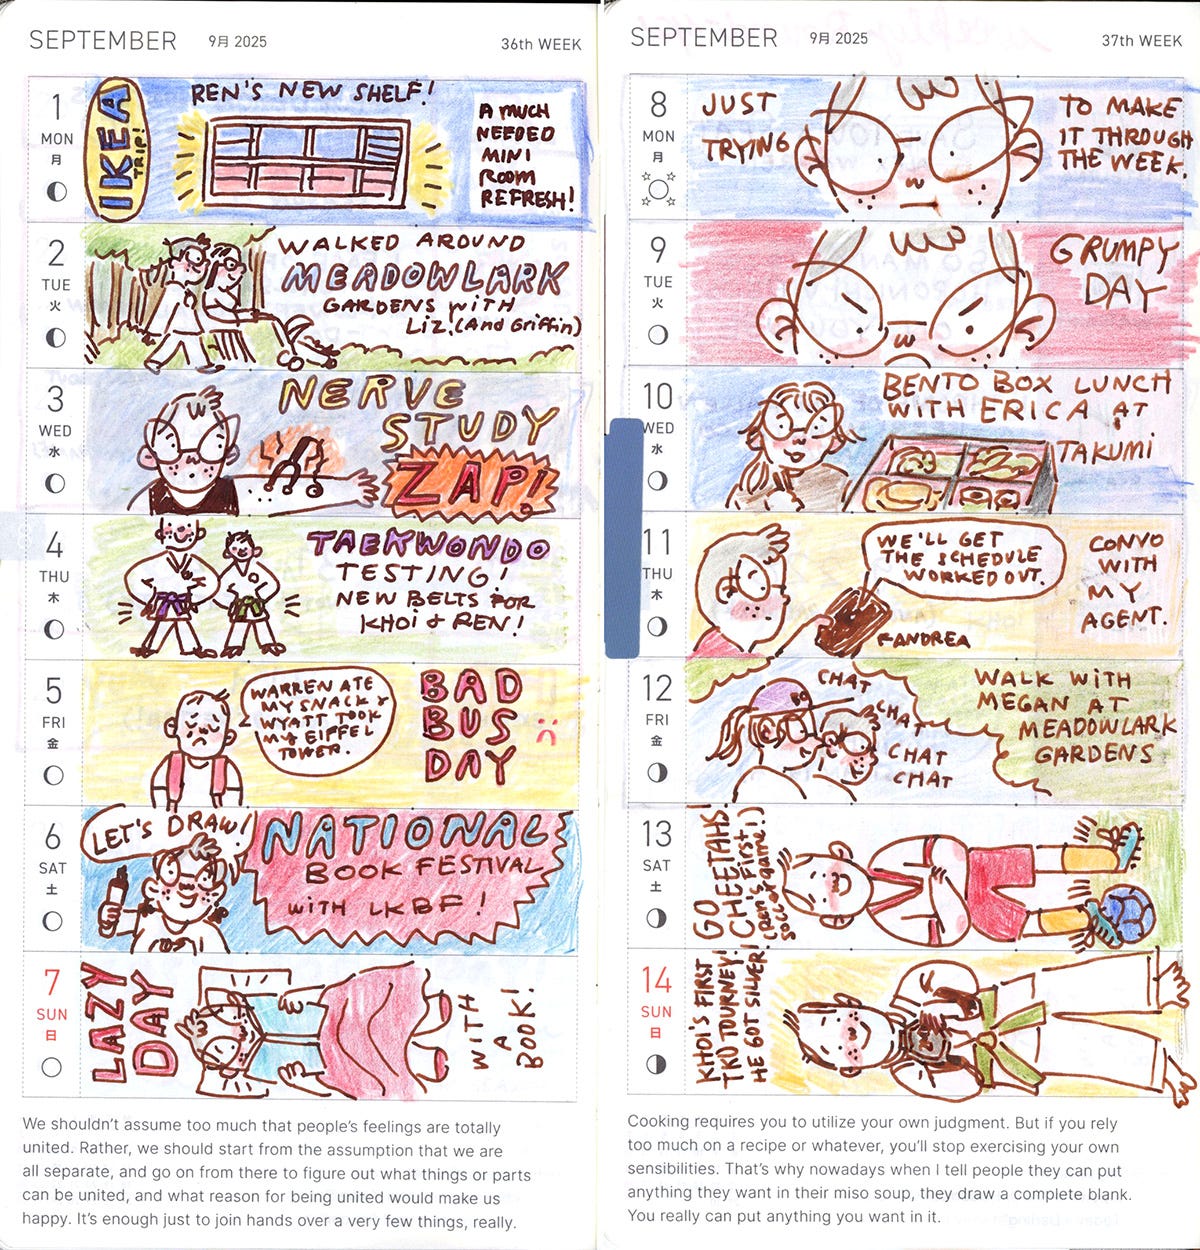 SEPTEMBER 9月 2025 36th WEEK
1
MON
月
IKEA
TRIP!
REN'S NEW SHELF!
A MUCH
NEEDED
MINI
ROOM
REFRESH!
2
TUE
火
WALKED AROUND
MEADOWLARK
GARDENS WITH
LIZ. (And Griffin)
3
WED
水
NERVE
STUDY
ZAP!
4
THU
木
TAEKWONDO
TESTING!
NEW BELTS FOR
KHOI & REN!
5
FRI
金
WARREN ATE
MY SNACK &
WYATT TOOK
MY EIFFEL
TOWER.
BAD
BUS
DAY
6
SAT
土
LET'S DRAW!
NATIONAL
BOOK FESTIVAL
WITH LKBF!
7
SUN
日
LAZY
DAY
WITH
A
BOOK!
We shouldn't assume too much that people's feelings are totally
united. Rather, we should start from the assumption that we are
all separate, and go on from there to figure out what things or parts
can be united, and what reason for being united would make us
happy. It's enough just to join hands over a very few things, really.
SEPTEMBER 9月 2025 37th WEEK
8
MON
月
JUST
TRYING
TO MAKE
IT THROUGH
THE WEEK.
9
TUE
火
GRUMPY
DAY
10
WED
水
BENTO BOX LUNCH
WITH ERICA AT
TAKUMI
11
THU
木
WE'LL GET
THE SCHEDULE
WORKED OUT.
ANDREA
CONVO
WITH
MY
AGENT.
12
FRI
金
CHAT
CHAT
CHAT
CHAT
WALK WITH
MEGAN AT
MEADOWLARK
GARDENS
13
SAT
土
GO
CHEETAHS!
(Ren's First
soccer game!)
14
SUN
日
KHOI'S FIRST
TKD TOURNEY!
HE GOT SILVER!
Cooking requires you to utilize your own judgment. But if you rely
too much on a recipe or whatever, you'll stop exercising your own
sensibilities. That's why nowadays when I tell people they can put
anything they want in their miso soup, they draw a complete blank.
You really can put anything you want in it.